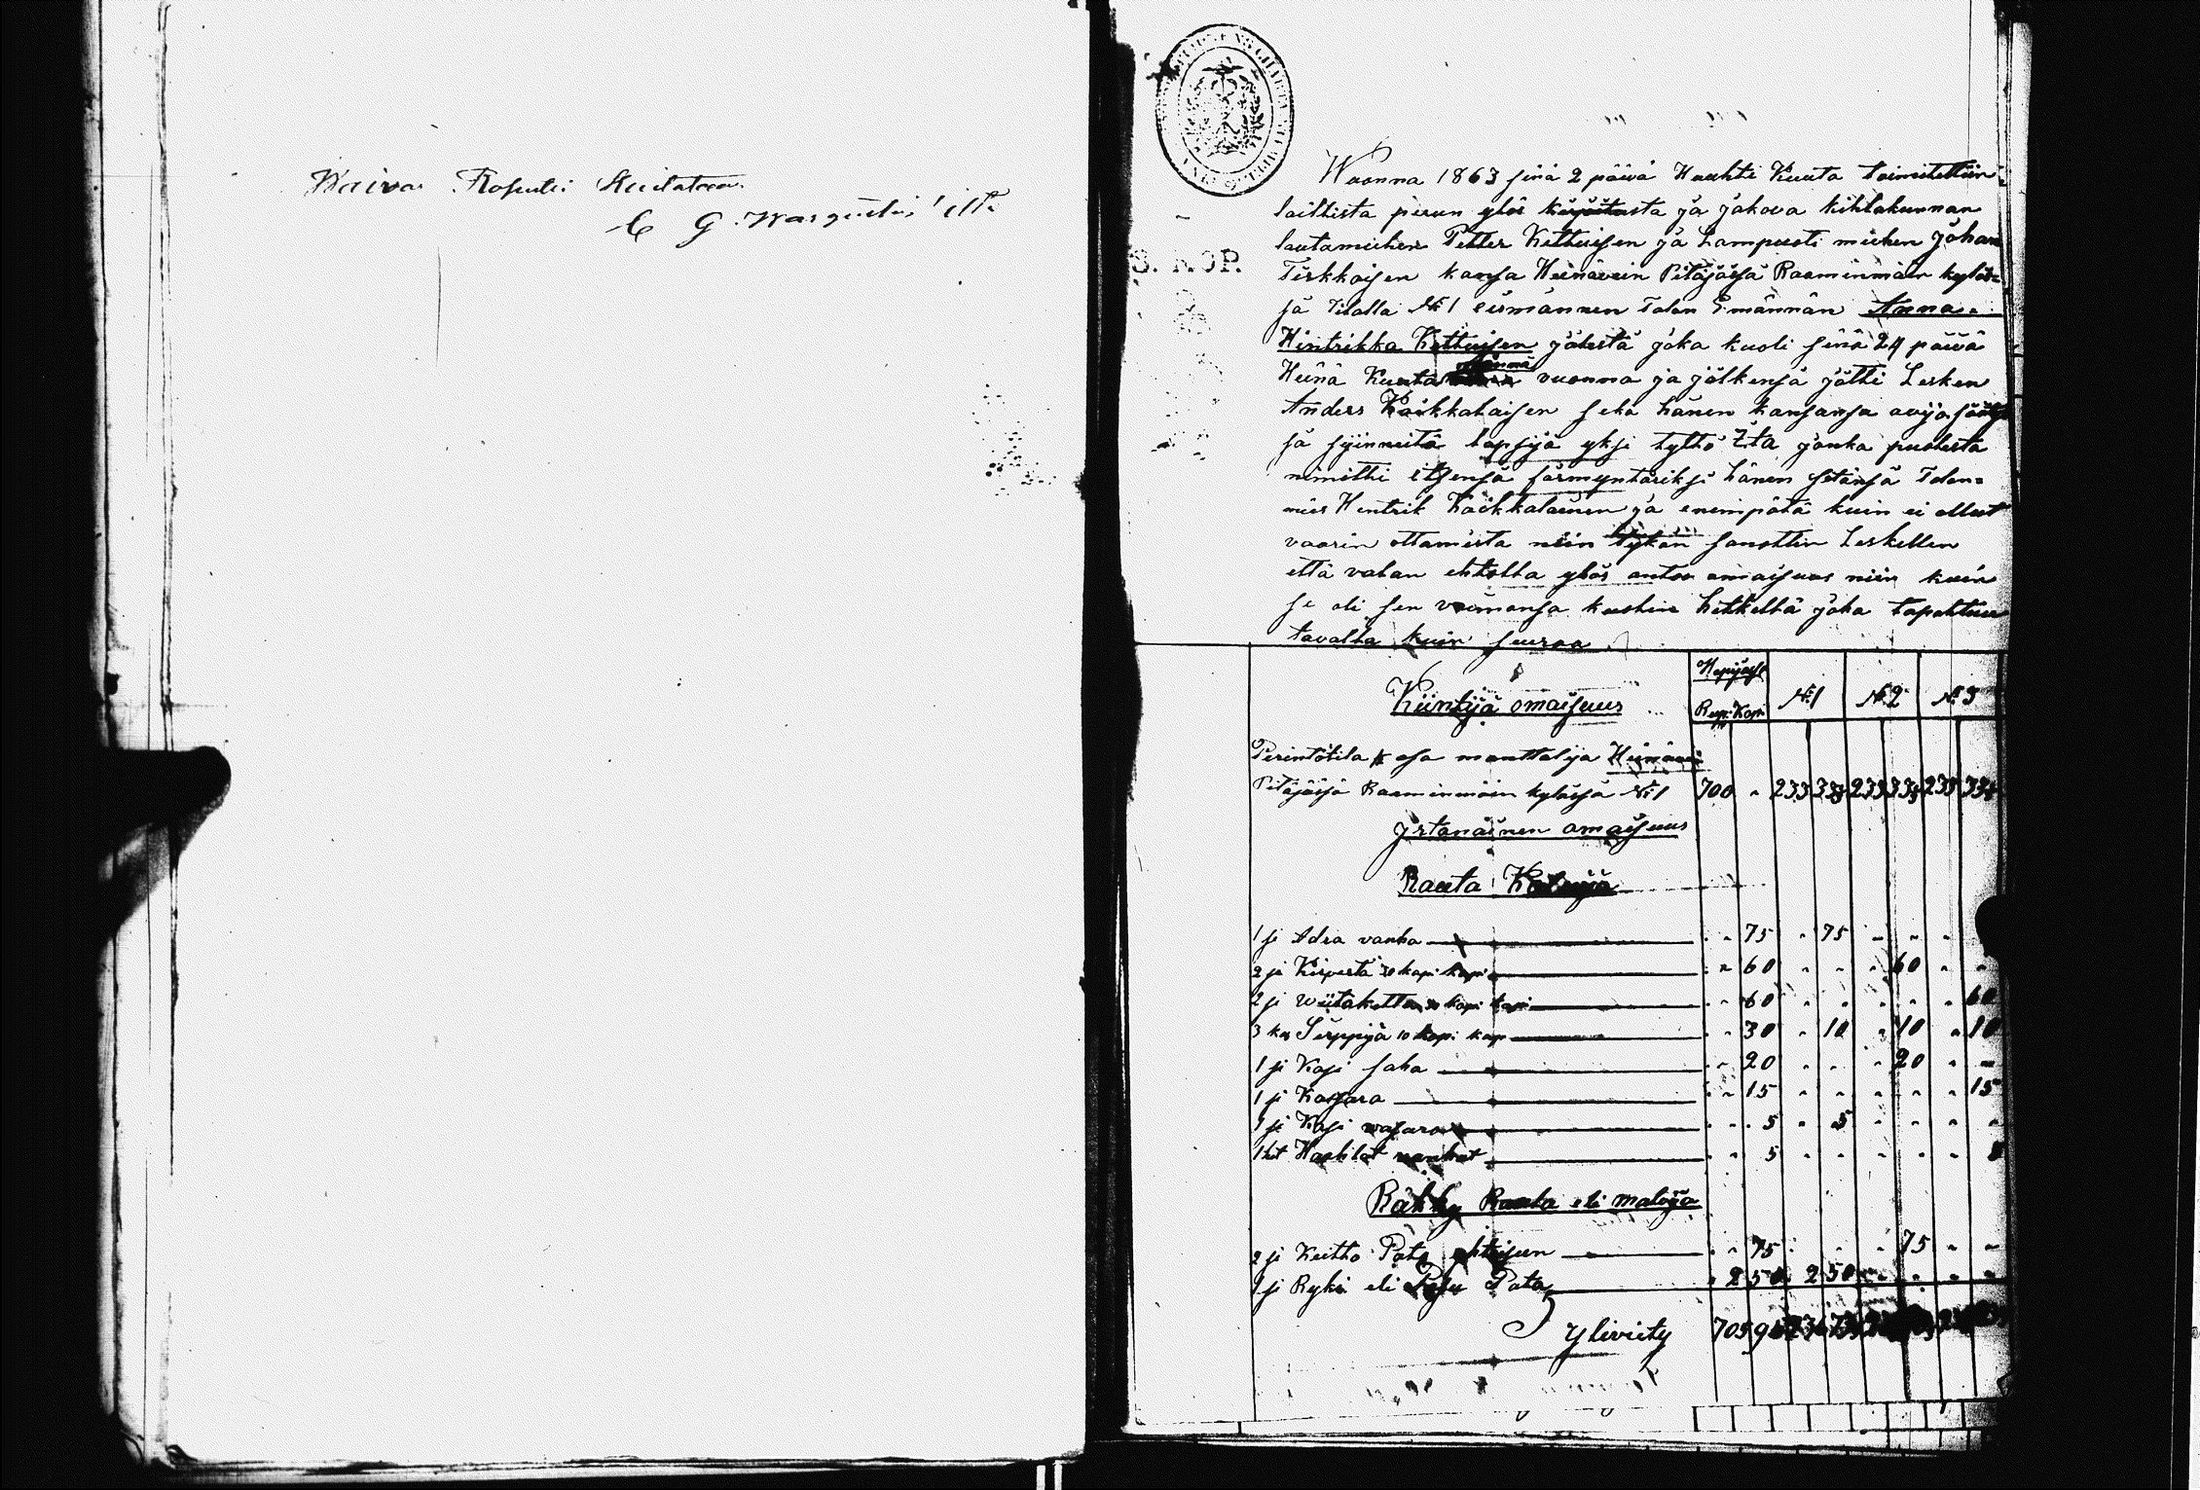 Waivas Prosentti Kuitataan
C G. Wargelin
S. KOP.
Wuonna 1863 sinä 2 päivä Huhti Kuuta toimitettiin
laillista perun ylös kirjoitusta ja jakova kihlakunnan
lautamiehen Petter Kettuisen ja Lampuoti miehen Johan
Tirkkoisen kansa Heinävein Pitäjäsä Raaminmäin kyläs=
sä tilalla No 1 eismännen Talon Emännän Anna
Hintrikka Kettuisen jälestä joka kuoli sinä 24 päivä
Heinä Kuuta vuonna ja jälkensä jätti Lesken
Anders Kaikkalaisen sekä hänen kansansa avio
sä syinneitä lapsija yksi tyttö jonka puolesta
nimitti itsensä färmyntäriksi hänen setänsä Talon=
mies Hentrik Kaikkalainen ja enempätä kuin ei ollut
vaarin ottamista niin tykön sanottin Leskellen
että valan ehtolla ylös antaa omaisuus niin kuin
se oli sen vaimonsa kuolin hetkellä joka tapahtuu
tavalla kuin seuraa
Kiintijä omaisuus Hopijassa No 1 No 2 No 3
Rupl Kopi
Perintötila osa manttalija Heinävein
Pitäjäsjä Raaminmäin kyläsjä No 1 700 - 233 33⅓ 233 33⅓ 233 33⅓
Irtanainen omaisuus
Rauta Kaluja
1 si Adra vanha - 75 - 75 - - - -
2 si Kirvestä 30 kopi kapi - 60 - - - 60 - -
2 si Wiitaketta 30 kopi kapi - 60 - - - - - 60
3 kas Sirppijä 10 kopi kap - 30 - 10 - 10 - 10
1 si Kasi saha - 20 - - - 20 - -
1 si Kassara - 15 - - - - - 15
1 si Kasi vasara - 5 - 5 - - - -
1 ket Hohtilot vanhat - 5 - - - - - 5
Rätky Rauta eli malmja
2 si Keitto Pata yhteisen - 75 - - - 75 - -
1 si Ryki eli Pesu Pata 2 50 2 50 - - - -
Yliviety 705